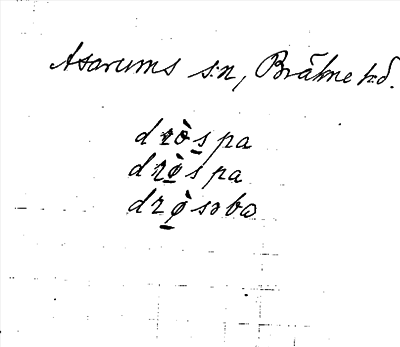 Asarums s:n, Bräkne h:d.
dròspa
drø̀spa
drø̀sobo